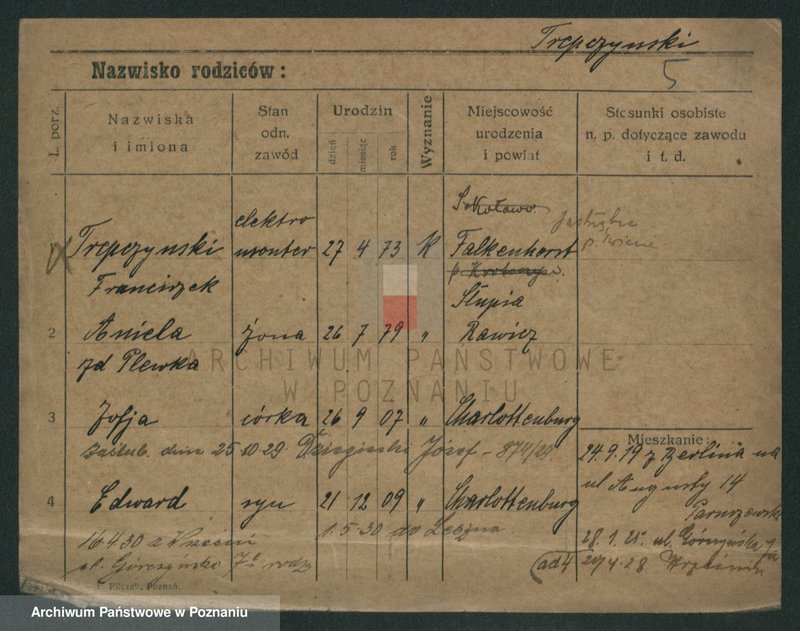 Trepczynski
5
Nazwisko rodziców:
L. porz.
Nazwiska
i imiona
Stan
odn.
zawód
Urodzin
dzień
miesiąc
rok
Wyznanie
Miejscowość
urodzenia
i powiat
Stosunki osobiste
n. p. dotyczące zawodu
i t. d.
Sokołowo
elektro
Trepczynski monter 27 4 73 K Falkenhorst
Franciszek
Słupia
2 Aniela żona 26 7 79 " Rawicz
zd Plewka
ARCHIWUM PAŃSTWOWE
W POZNANIU
3 Zofja córka 26 9 07 " Charlottenburg
zaślub. dnia 25 10 29 Józef - 874/29
Mieszkanie:
24.9.19 z Berlina na
ul Augusty 14
4 Edward syn 21 12 09 " Charlottenburg
1.5.30 do Leszna
16.4.30 z
ul. Górczyńska
28.1.21. ul. Górczyńska
ad 4
F. Pilczek, Poznań.
Archiwum Państwowe w Poznaniu